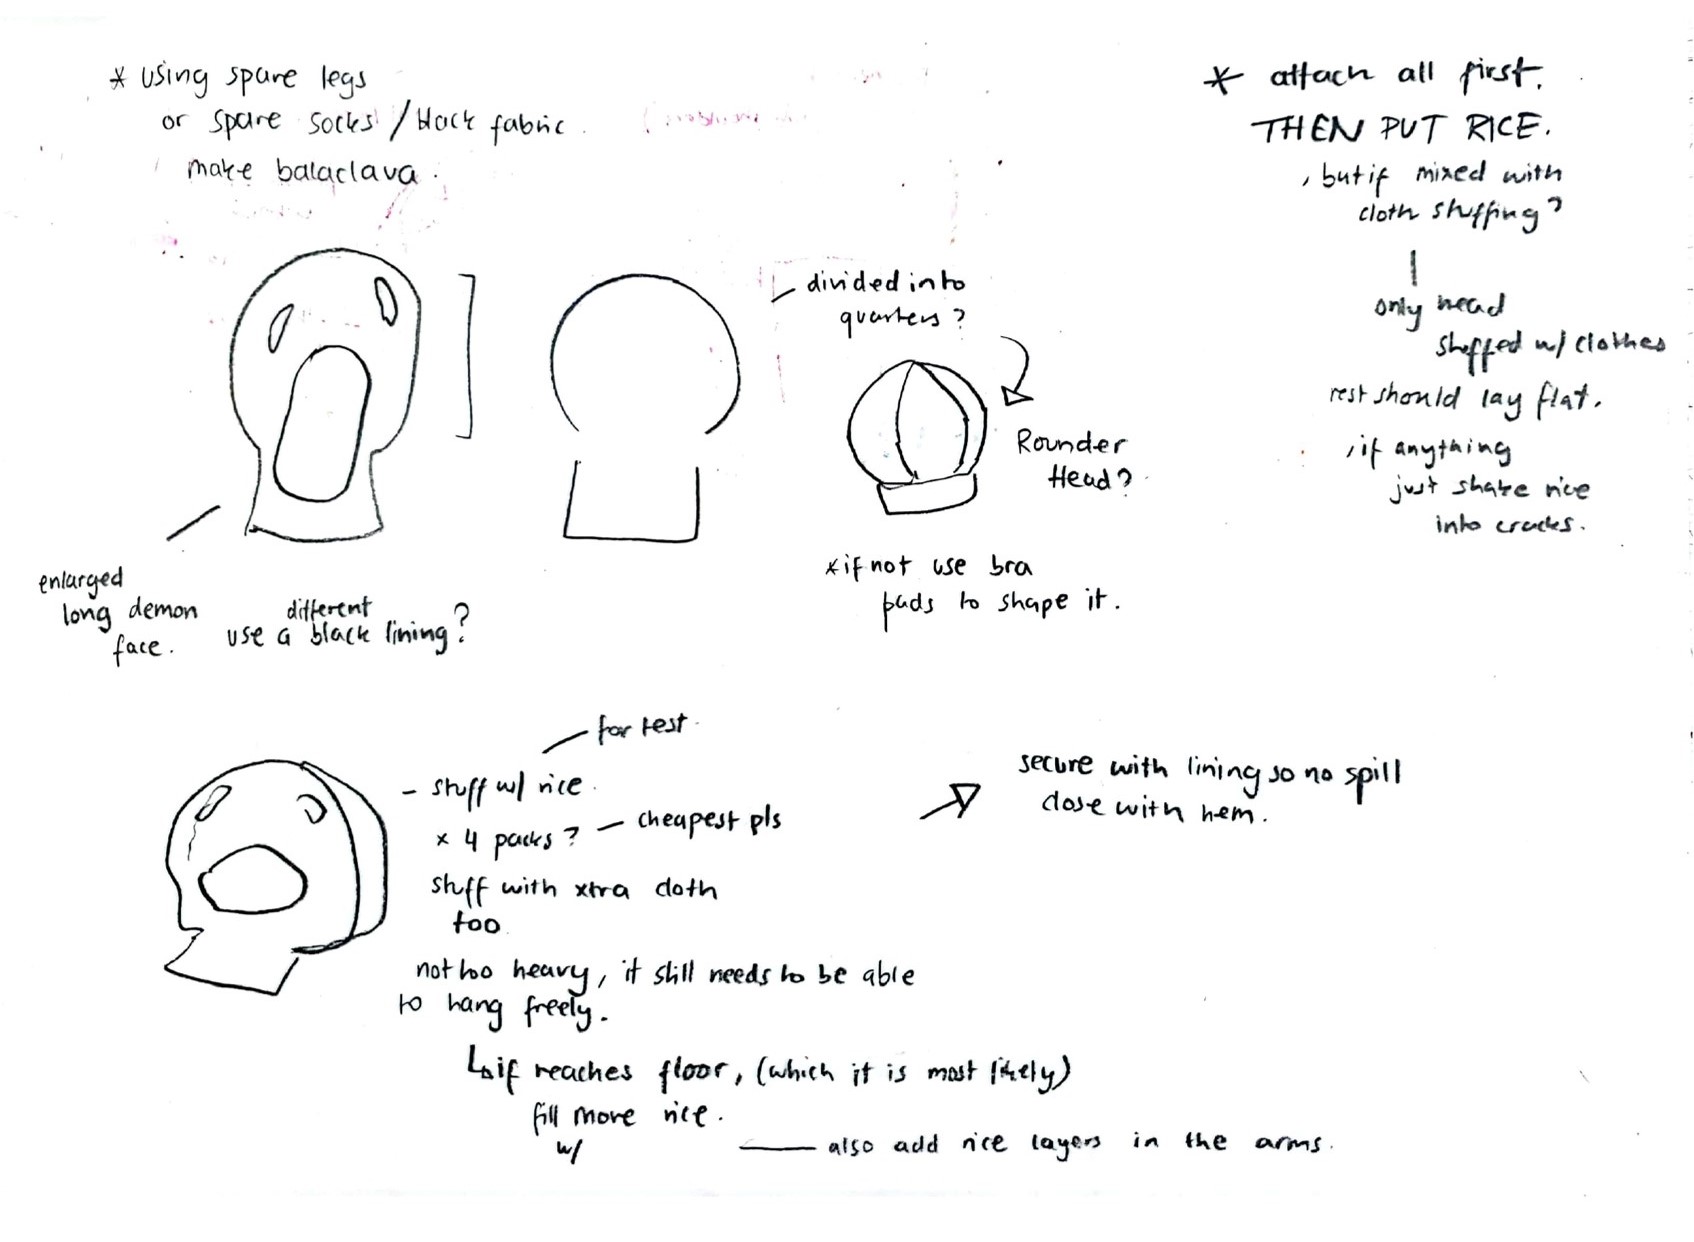 * using spare legs
or spare socks / black fabric.
make balaclava.
* attach all first.
THEN PUT RICE.
, but if mixed with
cloth stuffing?
only head
stuffed w/ clothes
rest should lay flat.
, if anything
just shake rice
into cracks.
divided into
quarters?
Rounder
Head?
* if not use bra
pads to shape it.
enlarged
long demon
face.
different
use a black lining?
for test.
- stuff w/ rice.
x 4 packs? — cheapest pls
stuff with xtra cloth
too
not too heavy, it still needs to be able
to hang freely.
if reaches floor, (which it is most likely)
fill more rice.
w/
also add rice layers in the arms.
secure with lining so no spill
close with hem.